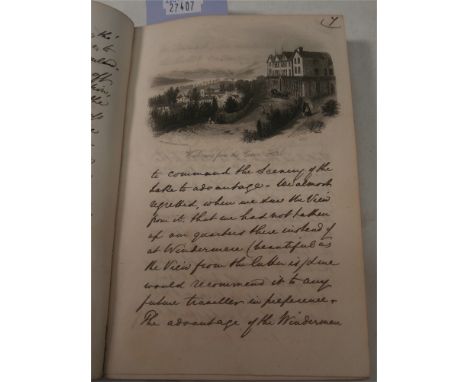 27407
7
from the
to command the Scenery of the
Lake to advantage. We almost
regretted, when we saw the View
from it, that we had not taken
up our quarters there instead of
at Windermere (beautiful as
the View from the latter is) & we
would recommend it to any
future traveller in preference.
The advantage of the Windermere